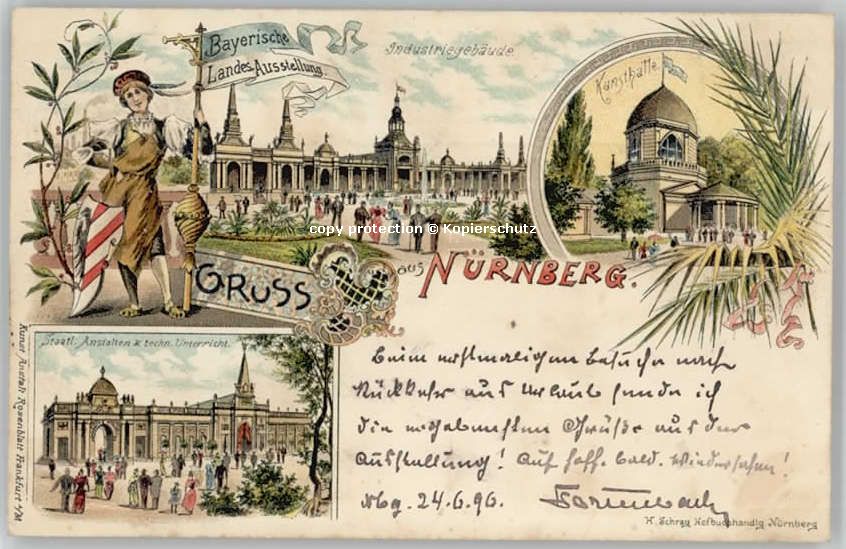 Bayerische
Landes-Ausstellung.
Industriegebäude.
Kunsthalle
copy protection © Kopierschutz
GRUSS aus NÜRNBERG.
Staatl. Anstalten & techn. Unterricht.
Kunst Anstalt Rosenblatt Frankfurt a/M
Beim erstmaligen Besuche nach
Rückkehr aus Urlaub sende ich
die ergebensten Grüße aus der
Ausstellung! Auf hoff. bald. Wiedersehen!
Nbg. 24.6.96.
H. Schrag Hofbuchhandlg Nürnberg